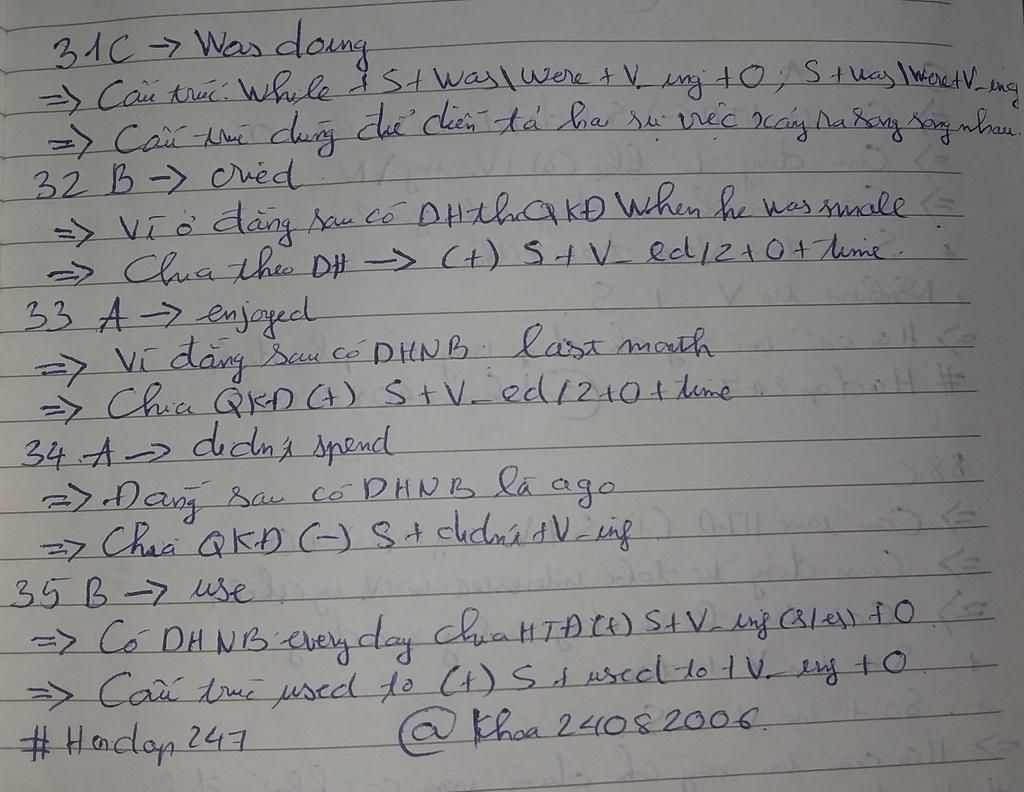 31C → Was doing
=> Cấu trúc: While + S + Was\Were + V_ing + O, S + was\Were + V_ing
=> Cấu trúc dùng để diễn tả hai sự việc xảy ra song song nhau.
32 B → cried.
=> Vì ở đằng sau có DHth QKĐ When he was small
=> Chia theo DH → (+) S + V_ed/2 + O + time.
33 A → enjoyed
=> Vì đằng sau có DHNB: last month
=> Chia QKĐ (+) S + V_ed/2 + O + time
34 A → didn't spend
=> Đằng sau có DHNB là ago
=> Chia QKĐ (-) S + didn't + V_ing
35 B → use
=> Có DHNB every day chia HTĐ (+) S + V_ing (s/es) + O
=> Cấu trúc used to (+) S + used to + V_ing + O
#Hoidap247 @Khoa24082006.